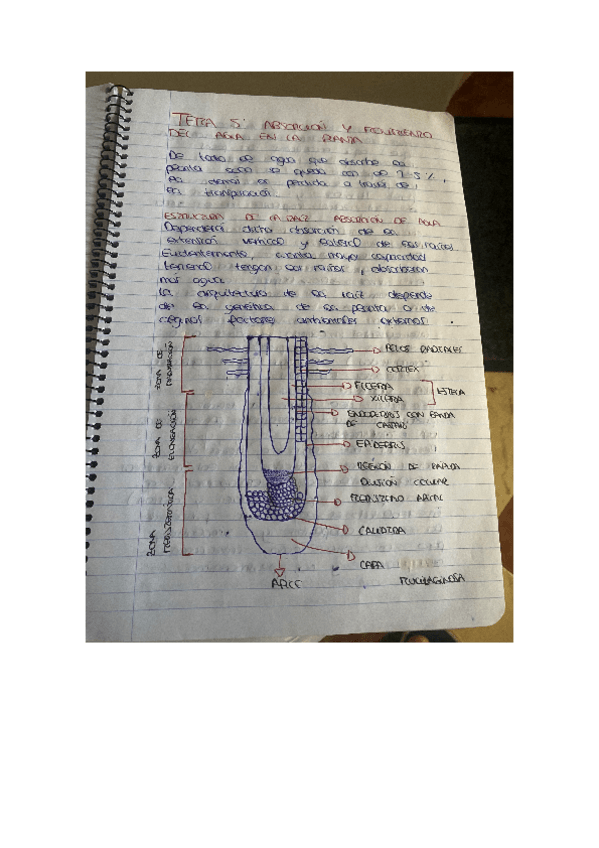 TEMA 5: ABSORCIÓN Y MOVIMIENTO
DEL AGUA EN LA PLANTA
De todo el agua que absorbe la
planta solo se queda con un 2-5%,
el demás es pérdida a través de
la transpiración.
ESTRUCTURA DE LA RAIZ ABSORCION DE AGUA
Dependerá dicha absorción de la
extensión vertical y lateral de las raíces
Evidentemente, cuanta mayor capacidad
tengan las raíces, absorberán
más agua
La arquitectura de la raíz depende
de la genética de la planta o de
algunos factores ambientales externos
ZONA DE MADURACIÓN
PELOS RADICALES
CORTEX
FLOEMA
XILEMA
ESTELA
ZONA DE ELONGACIÓN
ENDODERMIS CON BANDA
DE CASPARI
EPIDERMIS
REGIÓN DE RÁPIDA
DIVISIÓN CELULAR
ZONA MERISTEMÁTICA
MERISTEMO APICAL
CALIPTRA
CAPA
MUCILAGINOSA
APICE